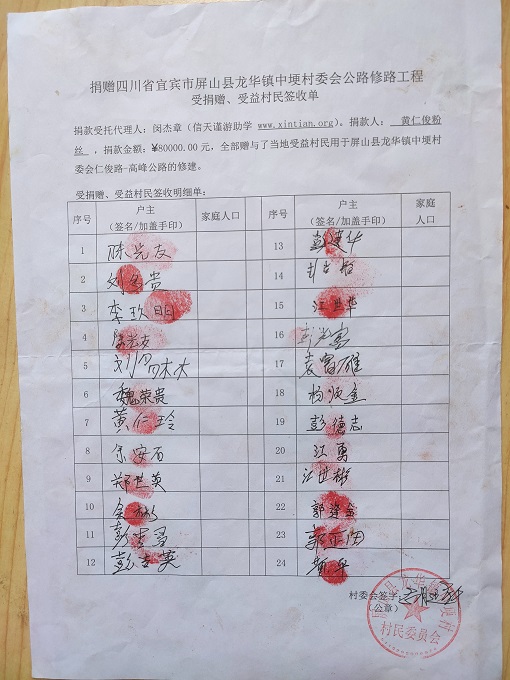 捐赠四川省宜宾市屏山县龙华镇中埂村委会公路修路工程
受捐赠、受益村民签收单
捐款受托代理人：闵杰章（信天谨游助学 www.xintian.org)。捐款人： 黄仁俊粉
丝 ，捐款金额：¥80000.00 元，全部赠与了当地受益村民用于屏山县龙华镇中埂村
委会仁俊路-高峰公路的修建。
受捐赠、受益村民签收明细单：
序号 户主（签名/加盖手印） 家庭人口 序号 户主（签名/加盖手印） 家庭人口
1 陈光友 13 彭建华
2 刘 贵 14
3 李玖明 15 江世华
4 16
5 17 袁富雄
6 魏荣贵 18 杨
7 黄仁玲 19 彭德志
8 余安石 20 江勇
9 郑世英 21 江世彬
10 22 郭
11 彭 23 郭
12 彭吉英 24
村委会签字
（公章）
村民委员会